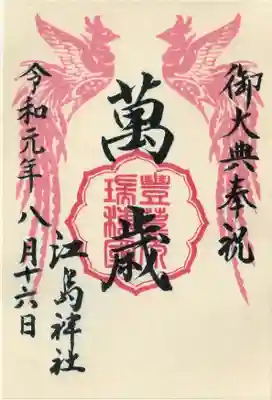 御大典奉祝
萬歳
豊葦原
瑞穂国
江島神社
令和元年八月十六日